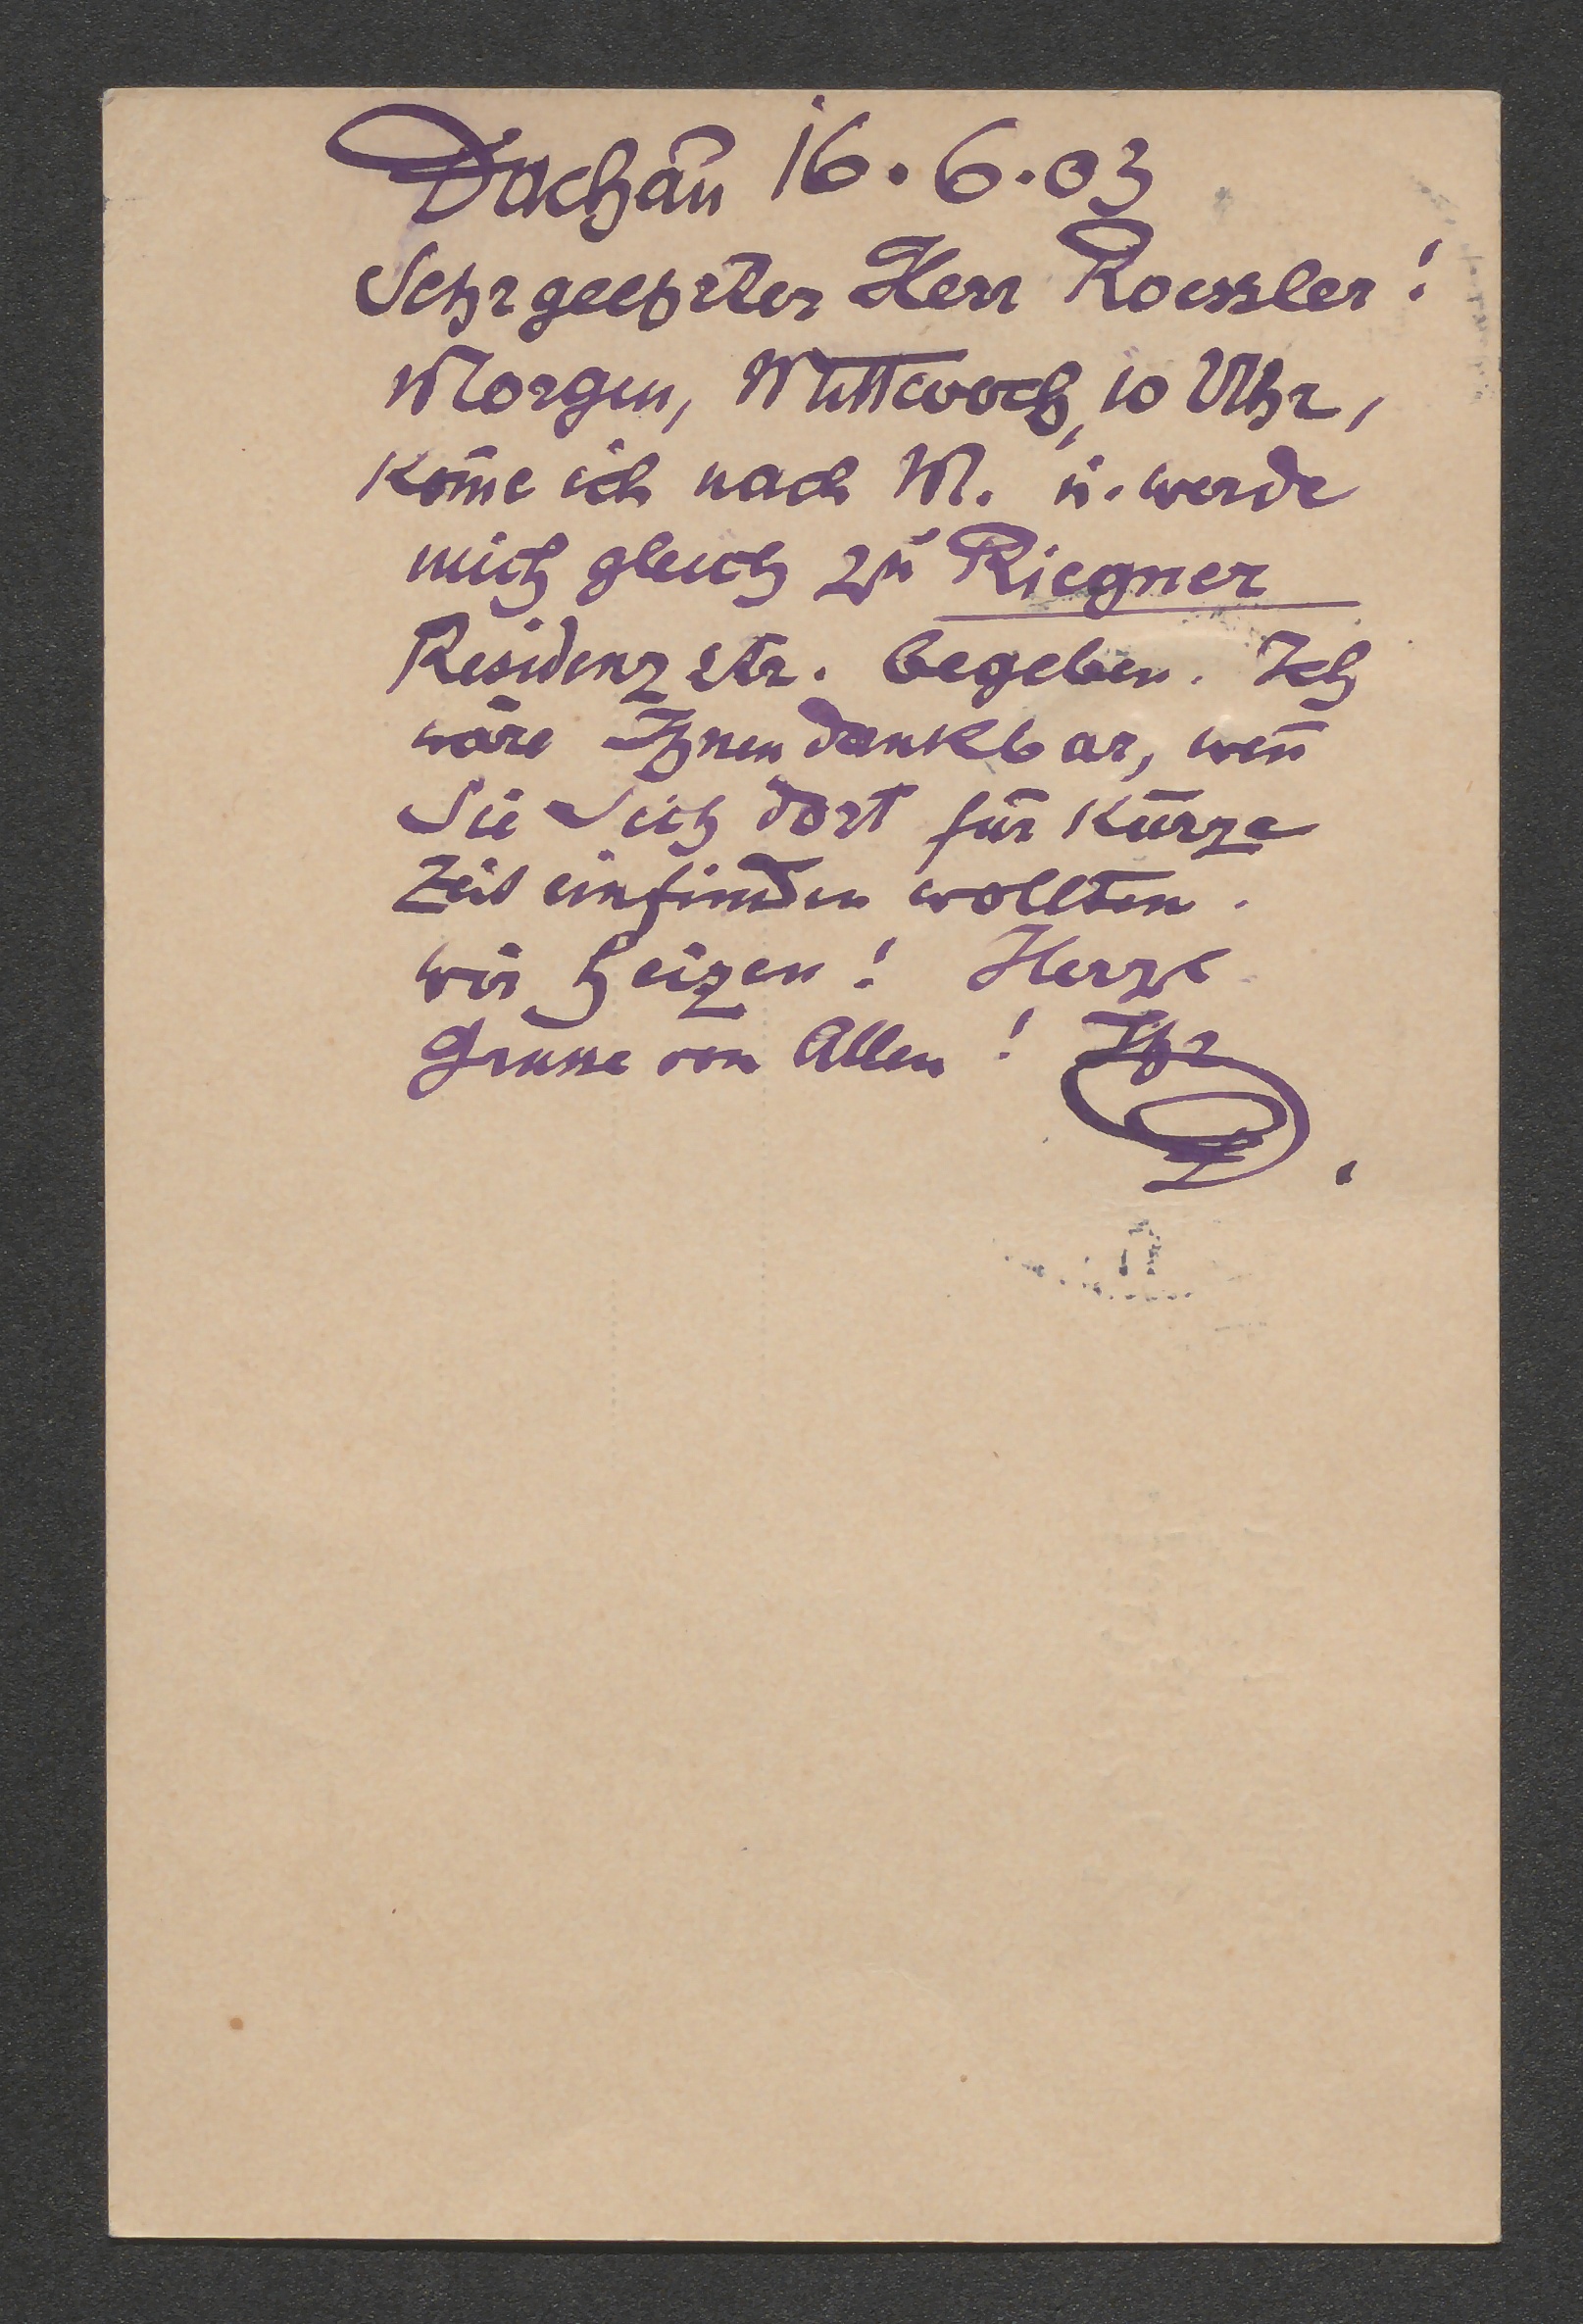 Dachau 16.6.03
Sehr geehrter Herr Roessler!
Morgen, Mittwoch, 10 Uhr,
kom̄e ich nach M. u. werde
mich gleich zu Riegner
Residenzstr. begeben. Ich
wäre Ihnen dankbar, wen̄
Sie Sich dort für kurze
Zeit einfinden wollten.
wir heizen! Herzl
Grüsse von Allen! Ihr